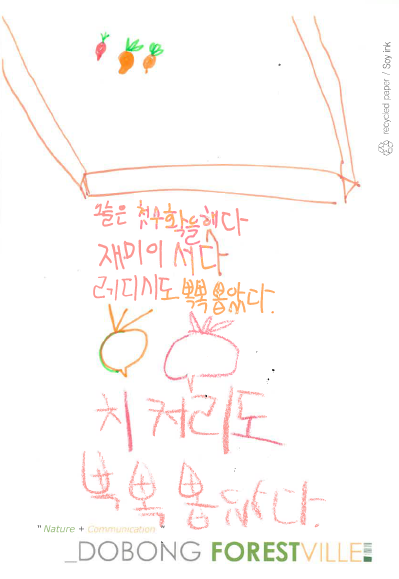 recycled paper / Soy ink
오늘은 첫수확을했다
재미이서다
레디시도 뽁뽁뽑았다.
치커리도
뽁뽁뽑았다.
"Nature + Communication"
_DOBONG FORESTVILLE